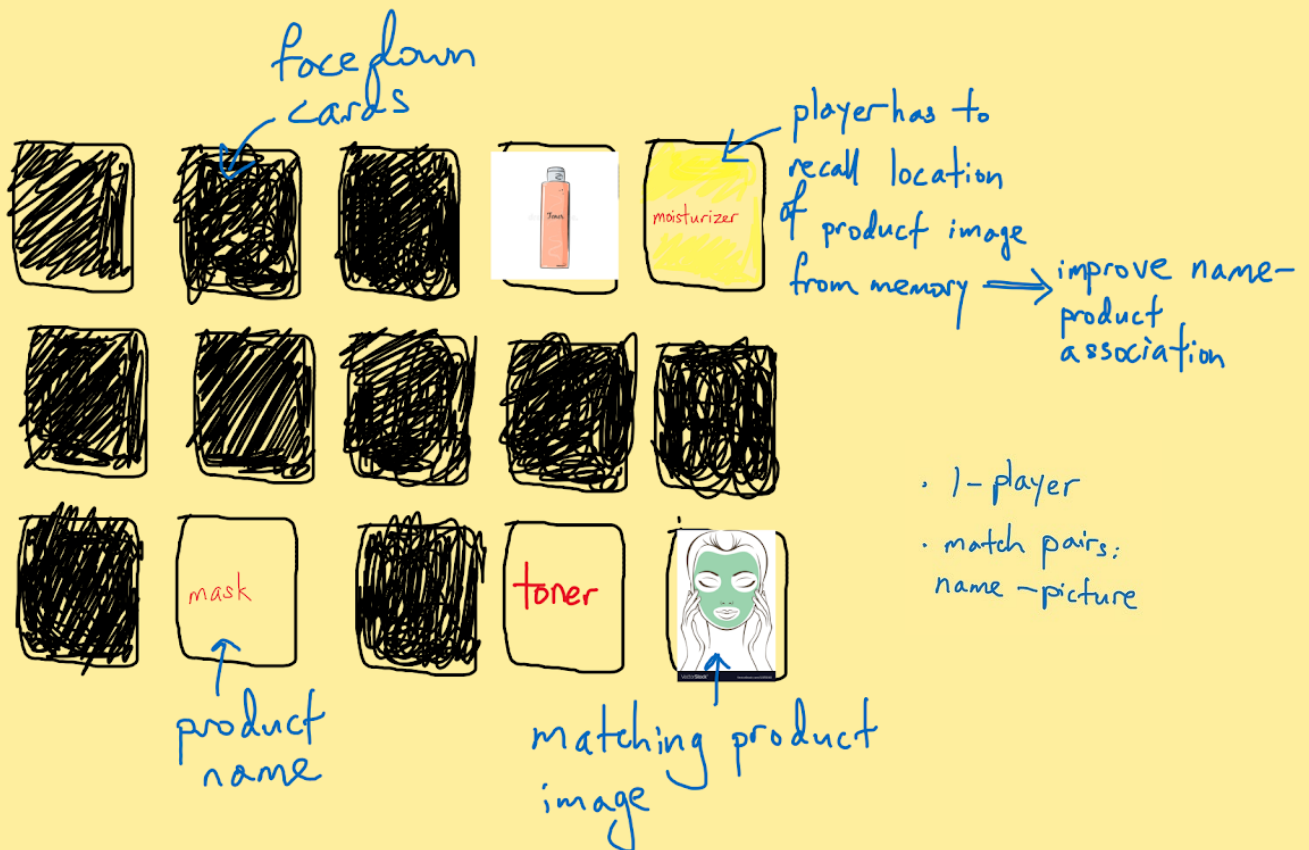 face down
cards
player has to
recall location
of product image
from memory ⟹ improve name-
product
association
Toner
moisturizer
· 1-player
· match pairs:
name - picture
mask
toner
VectorStock
product
name
matching product
image